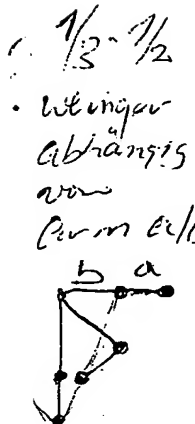 1/3 - 1/2
• weniger
abhängig
vom
b a